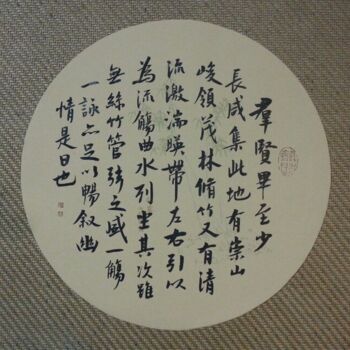 羣賢畢至少
長咸集此地有崇山
峻領茂林脩竹又有清
流激湍暎帶左右引以
為流觴曲水列坐其次雖
無絲竹管弦之盛一觴
一詠亦足以暢叙幽
情是日也